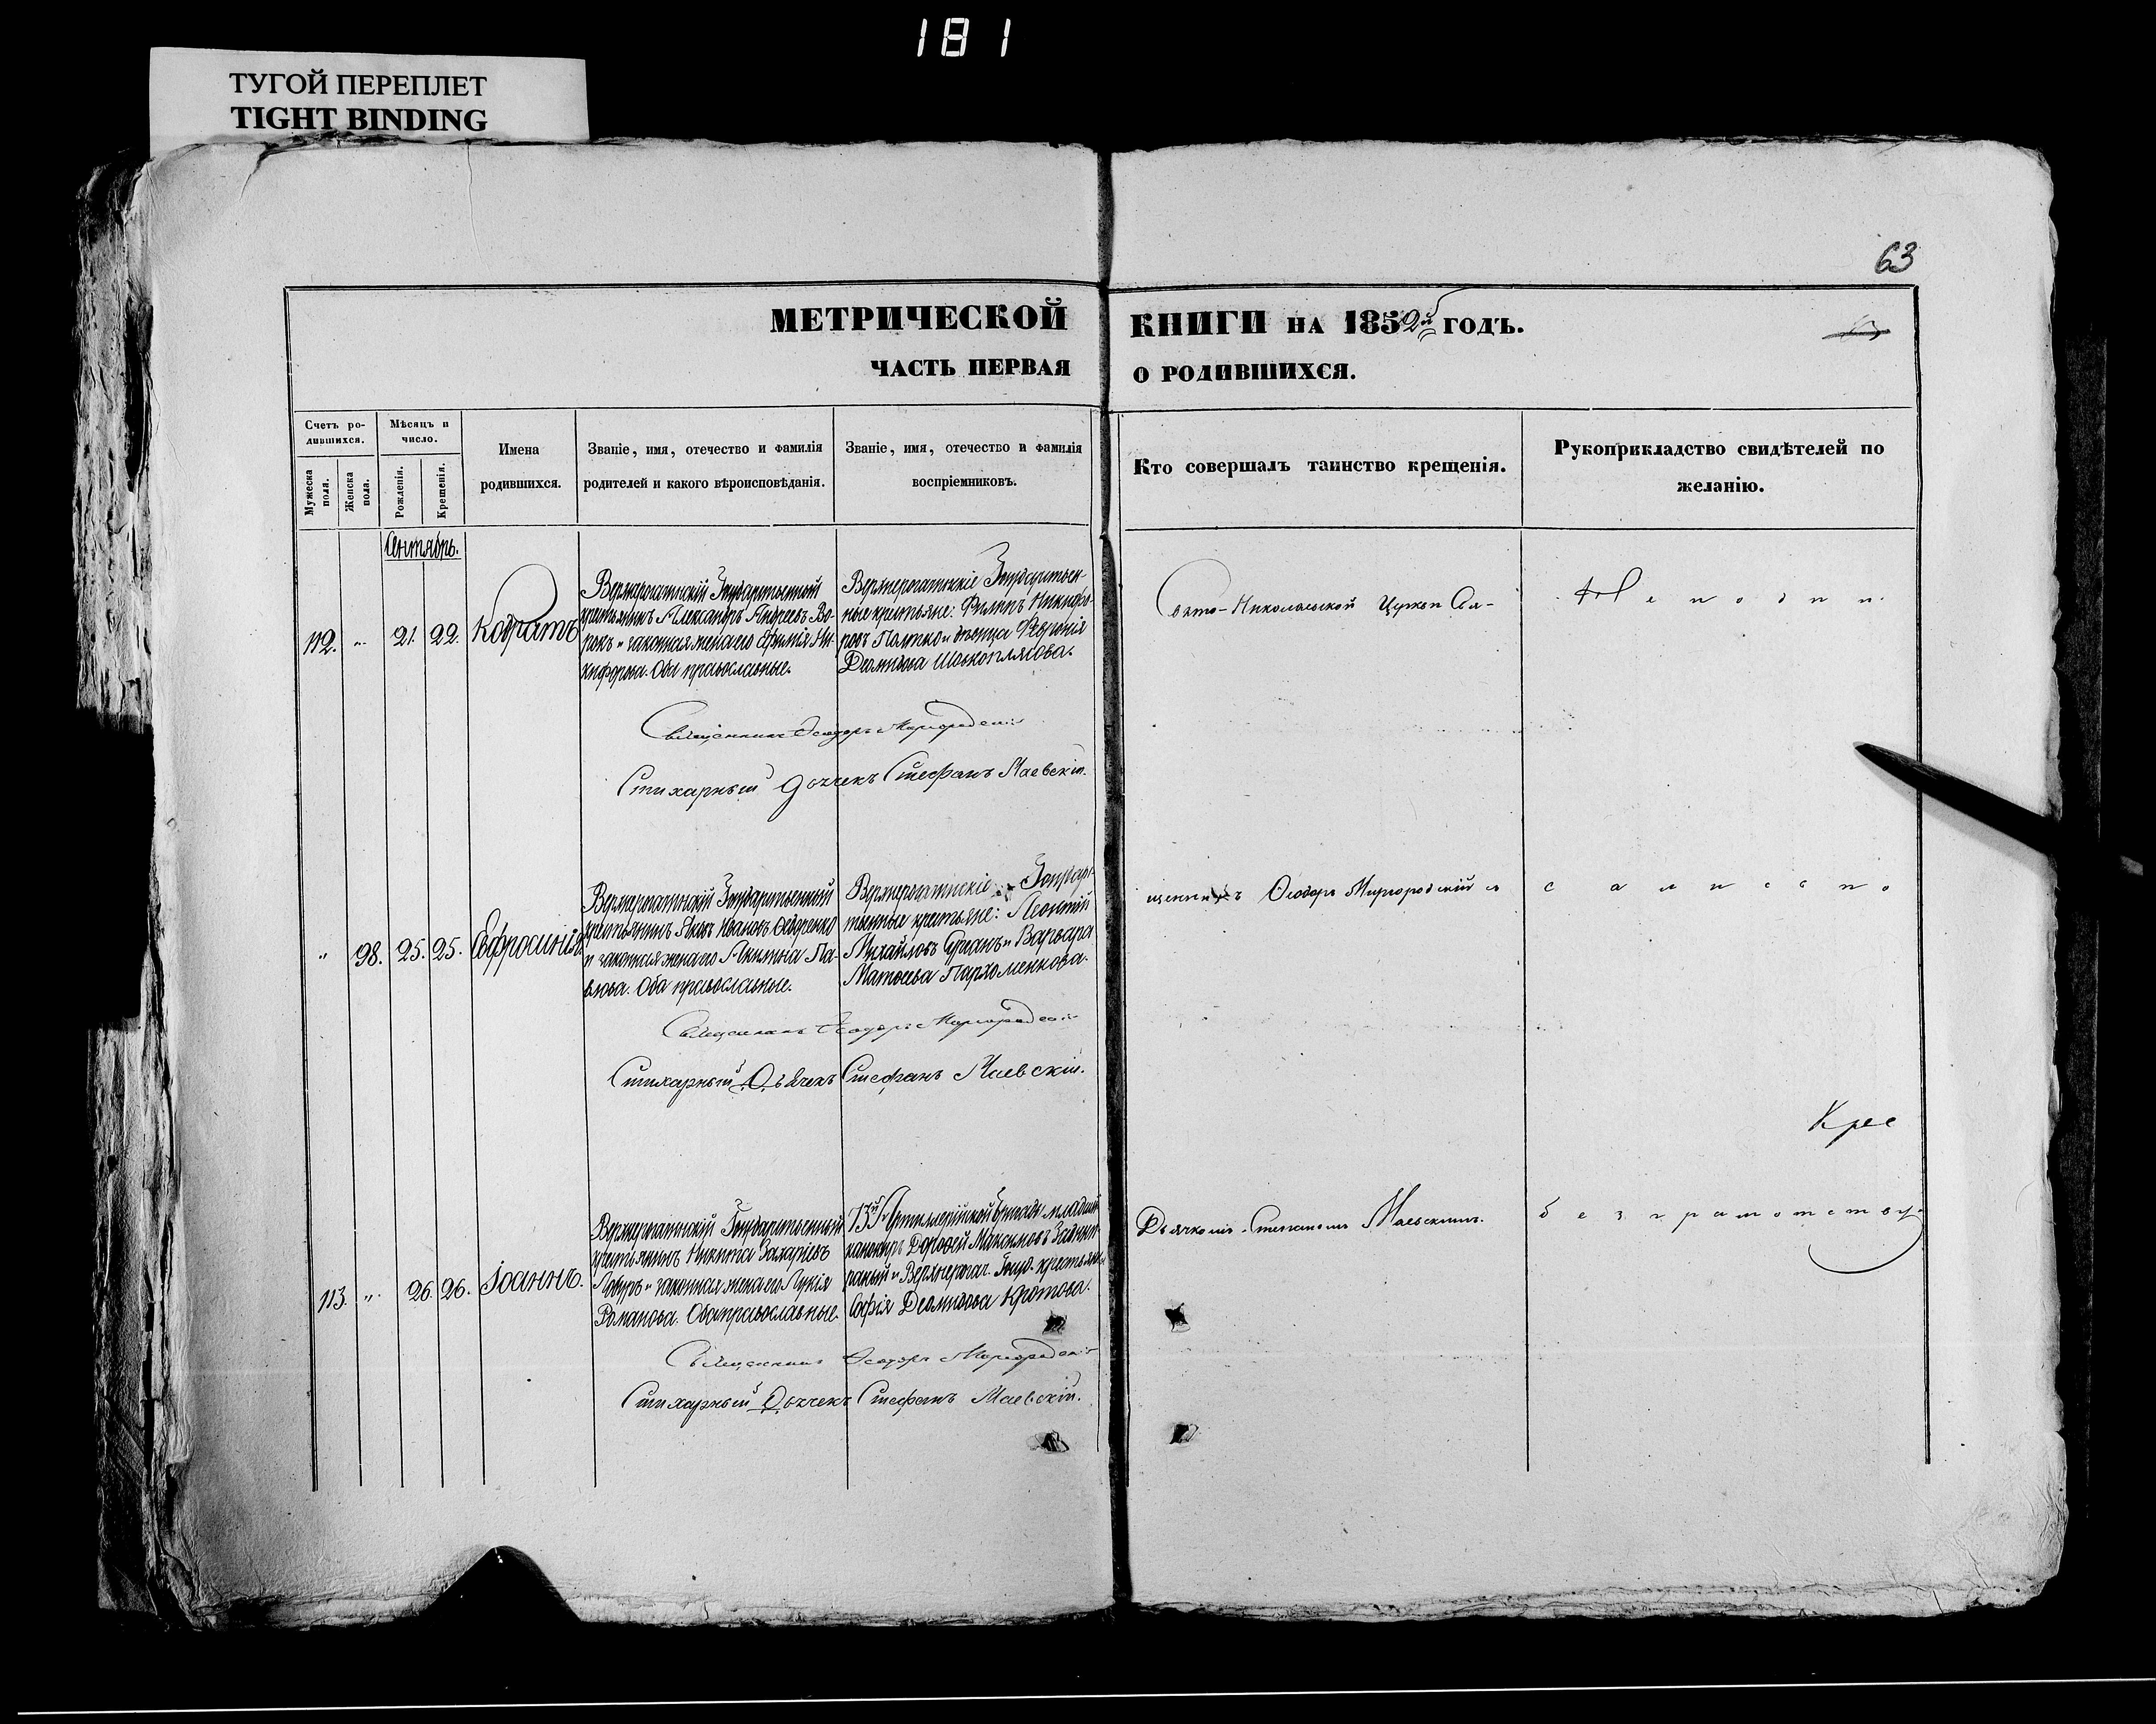 181
ТУГОЙ ПЕРЕПЛЕТ
TIGHT BINDING
63
МЕТРИЧЕСКОЙ КНИГИ НА 1852й ГОДЪ.
ЧАСТЬ ПЕРВАЯ О РОДИВШИХСЯ.
Счетъ ро-
дившихся.
Мужеска пола.
Женска пола.
Мѣсяцъ и
число.
Рожденія.
Крещенія.
Имена
родившихся.
Званіе, имя, отечество и фамилія
родителей и какого вѣроисповѣданія.
Званіе, имя, отечество и фамилія
воспріемниковъ.
Кто совершалъ таинство крещенія.
Рукоприкладство свидѣтелей по
желанію.
Сентябрь.
112. „ 21. 22. Кодратъ
Государственный
крестьянинъ Александръ Андреевъ Во-
рокъ и законная жена его Ефимія Ни-
кифорова. Оба православные.
Государствен-
ные крестьяне: Филипъ Никифо-
ровъ и девица Феврония
Деомидова
Свято-Николаевской Церкви Свя-
Священникъ Ѳеодоръ Миргородскій
Стихарный Дьячекъ Стефанъ Маевскій.
„ 98. 25. 25. Евфросинія
Государственный
крестьянинъ Яковъ Ивановъ Ѳедоренко
и законная жена его Акилина Па-
влова. Оба православные.
Государ-
твенные крестьяне: Леонтій
Михайловъ и Варвара
Матѳеева Пархоменкова.
щенникъ Ѳеодоръ Миргородскій съ
Священникъ Ѳеодоръ Миргородскій
Стихарный Дьячекъ Стефанъ Маевскій.
113. „ 26. 26. Іоаннъ.
Государственный
крестьянинъ Никита Захаріевъ
и законная жена его Лукія
Романова. Оба православные.
13й Артиллерійской бригады младшій
канониръ Дорофей Максимовъ
и Госуд. крестьянка
Софія Деомидова Кротова.
Дьячкомъ Стефаномъ Маевскимъ.
безграмотству
Священникъ Ѳеодоръ Миргородскій
Стихарный Дьячекъ Стефанъ Маевскій.